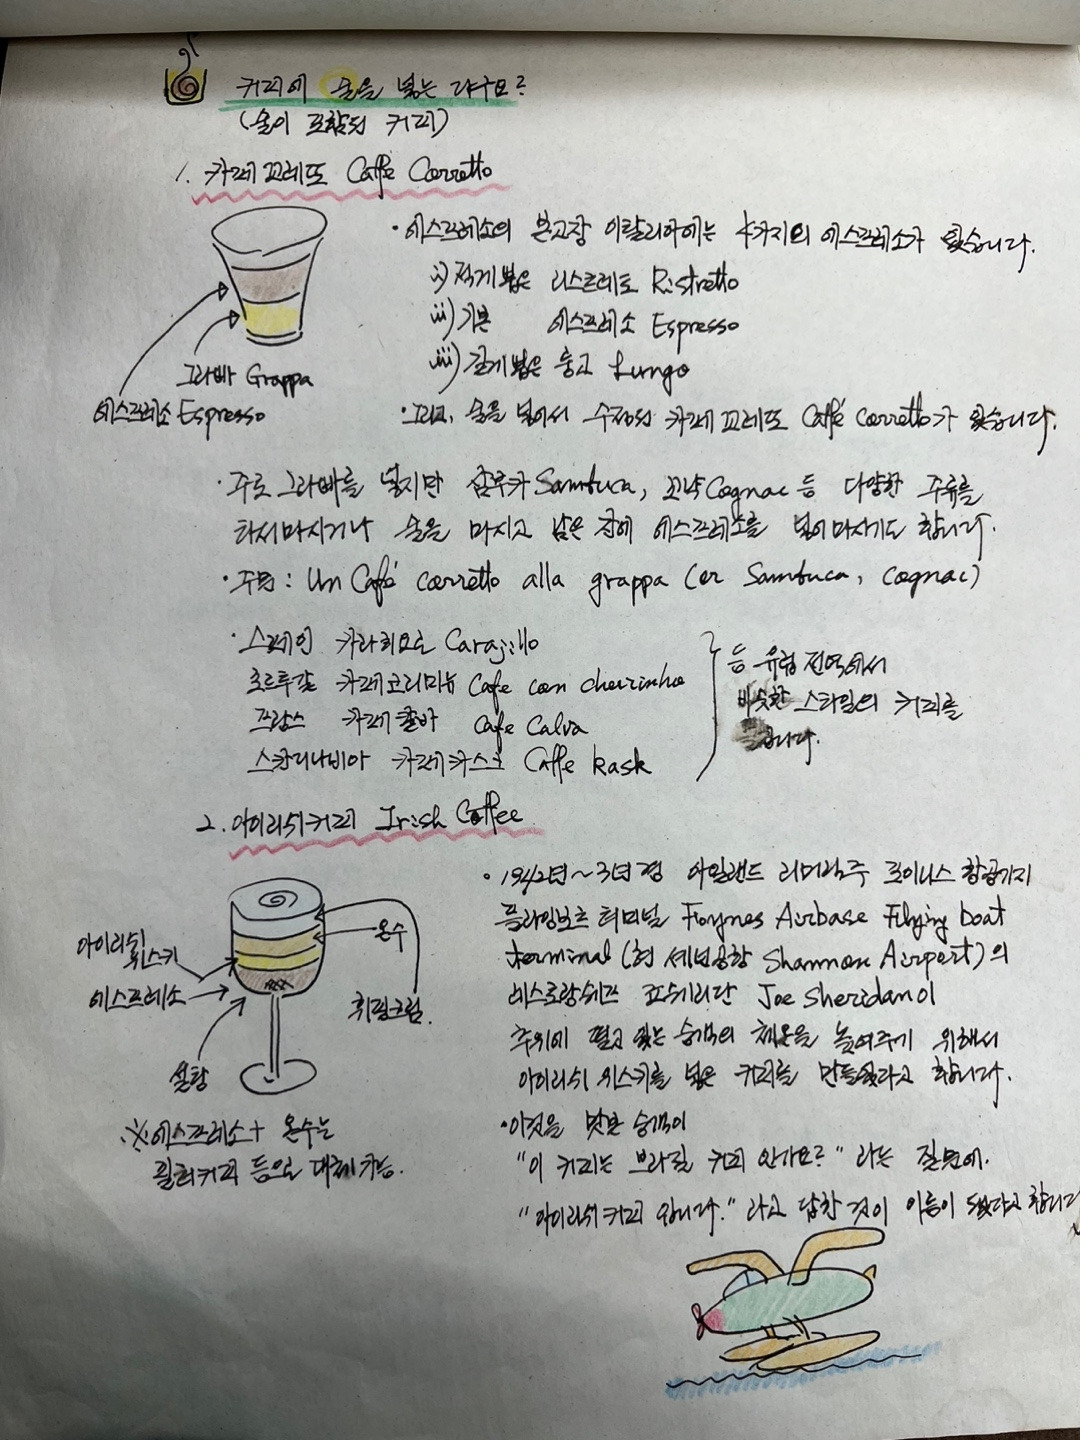 커피에 술을 넣는 다구요?
(술이 포함된 커피)
1. 카페 꼬레또 Caffe Corretto
그라빠 Grappa
에스프레소 Espresso
· 에스프레소의 본고장 이탈리아에는 4가지의 에스프레소가 있습니다.
i) 적게 뽑은 리스트레토 Ristretto
ii) 기본 에스프레소 Espresso
iii) 길게 뽑은 룽고 Lungo
· 그리고, 술을 넣어서 수정된 카페 꼬레또 Caffé corretto가 있습니다.
· 주로 그라빠를 넣지만 삼부카 Sambuca, 꼬냑 Cognac 등 다양한 주류를
타서마시거나 술을 마시고 남은 잔에 에스프레소를 넣어마시기도 합니다.
· 주문 : Un Café corretto alla grappa (or Sambuca, cognac)
· 스페인 카라히요 Carajillo
포르투갈 카페 Cafe com cheirinho
프랑스 카페 칼바 Cafe Calva
스칸디나비아 카페카스크 Caffe kask
등 유럽 전역에서
비슷한 스타일의 커피를
2. 아이리쉬커피 Irish Coffee
아이리쉬
위스키
에스프레소
설탕
온수
휘핑크림.
※에스프레소+ 온수는
필터커피 등으로 대체가능.
· 1942년~3년 경 아일랜드 리머릭주 포이너스 항공기지
플라잉보트 터미널 Foynes Airbase Flying boat
terminal (현 섀넌공항 Shannon Airport)의
레스토랑쉐프 조쉐리단 Joe Sheridan이
추위에 떨고 있는 승객의 체온을 높여주기 위해서
아이리쉬 위스키를 넣은 커피를 만들었다고 합니다.
· 이것을 맛본 승객이
"이 커피는 브라질 커피 인가요?" 라는 질문에.
"아이리쉬커피 입니다." 라고 답한 것이 이름이 되었다고 합니다